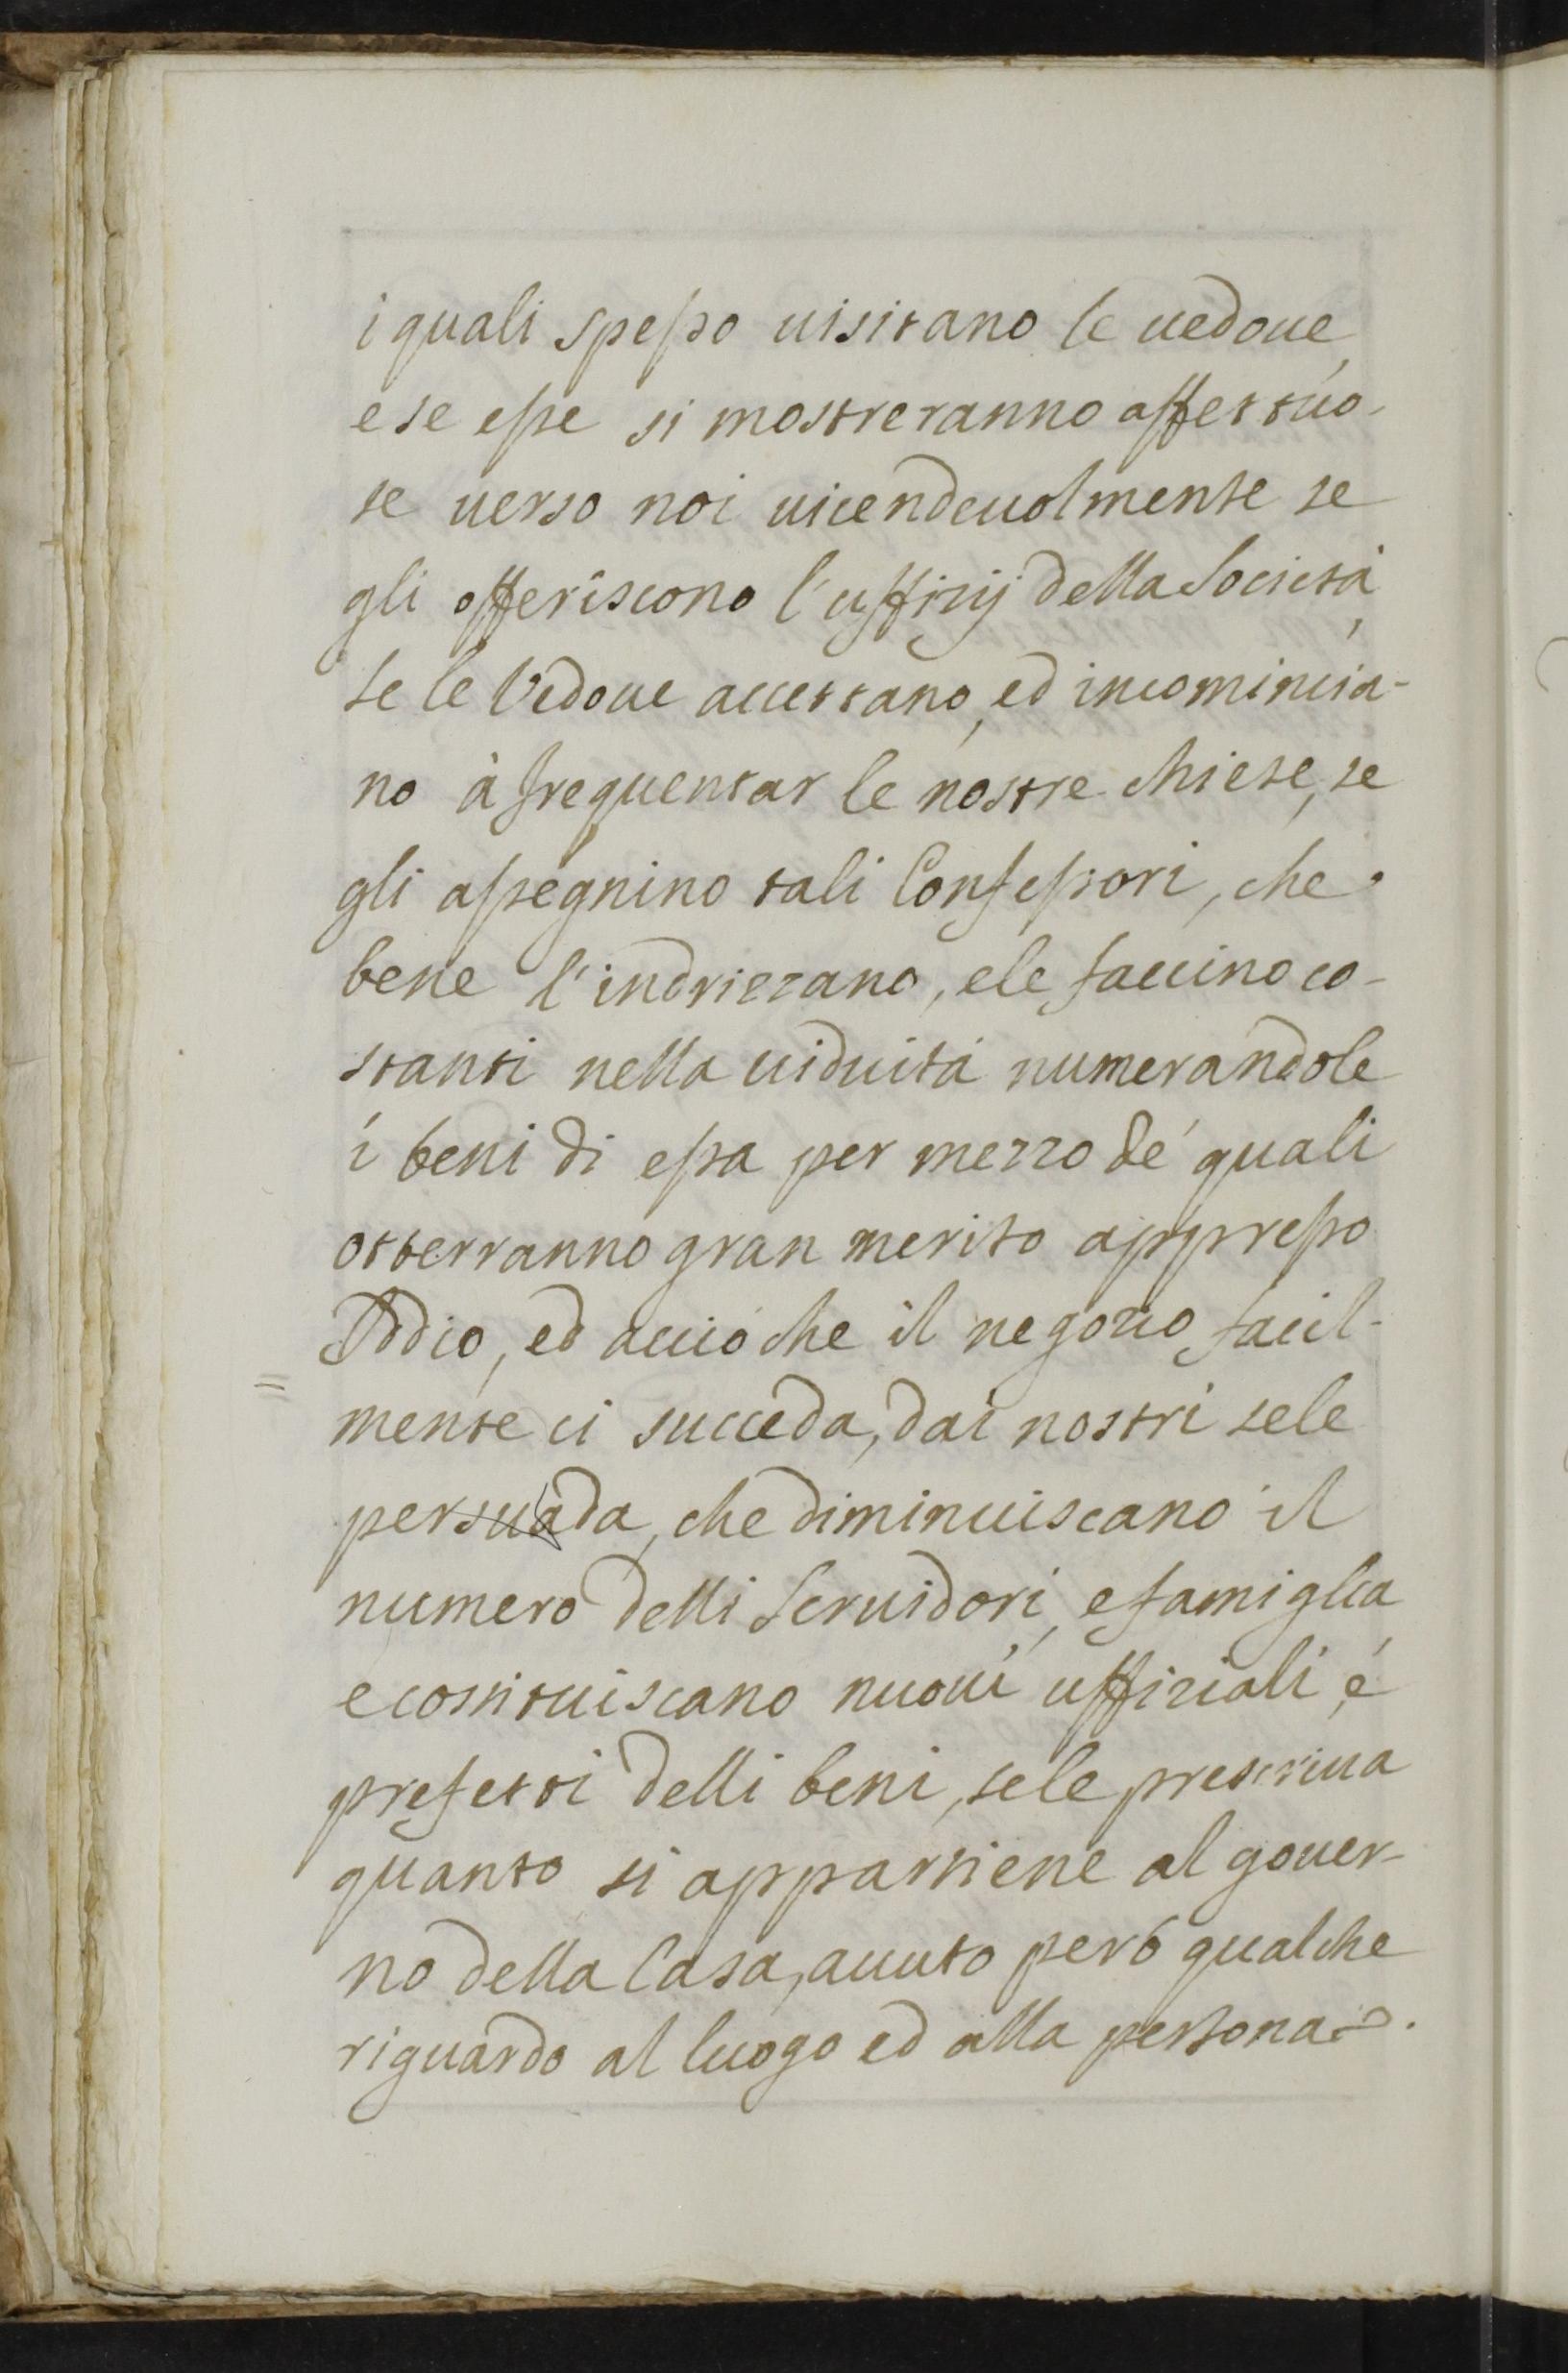 i quali spesso uisitano le uedoue,
e se esse si mostreranno affettuo-
se uerso noi uicendeuolmente se
gli offeriscono l'uffizij della Società,
se le Vedoue accettano, ed incomincia-
no à frequentar le nostre chiese, se
gli assegnino tali Confessori, che
bene l'indrizzano, e le faccino co-
stanti nella uiduità numerandole
i beni di essa per mezzo de' quali
otterranno gran merito appresso
Iddio, ed acciò che il negozio facil-
mente ci succeda, dai nostri se le
persuada, che diminuiscano il
numero delli Seruidori, e famiglia
e constituiscano nuoui uffiziali, é
prefetti delli beni, se le prescriua
quanto si appartiene al gouer-
no della Casa, auuto però qualche
riguardo al luogo ed alla persona.